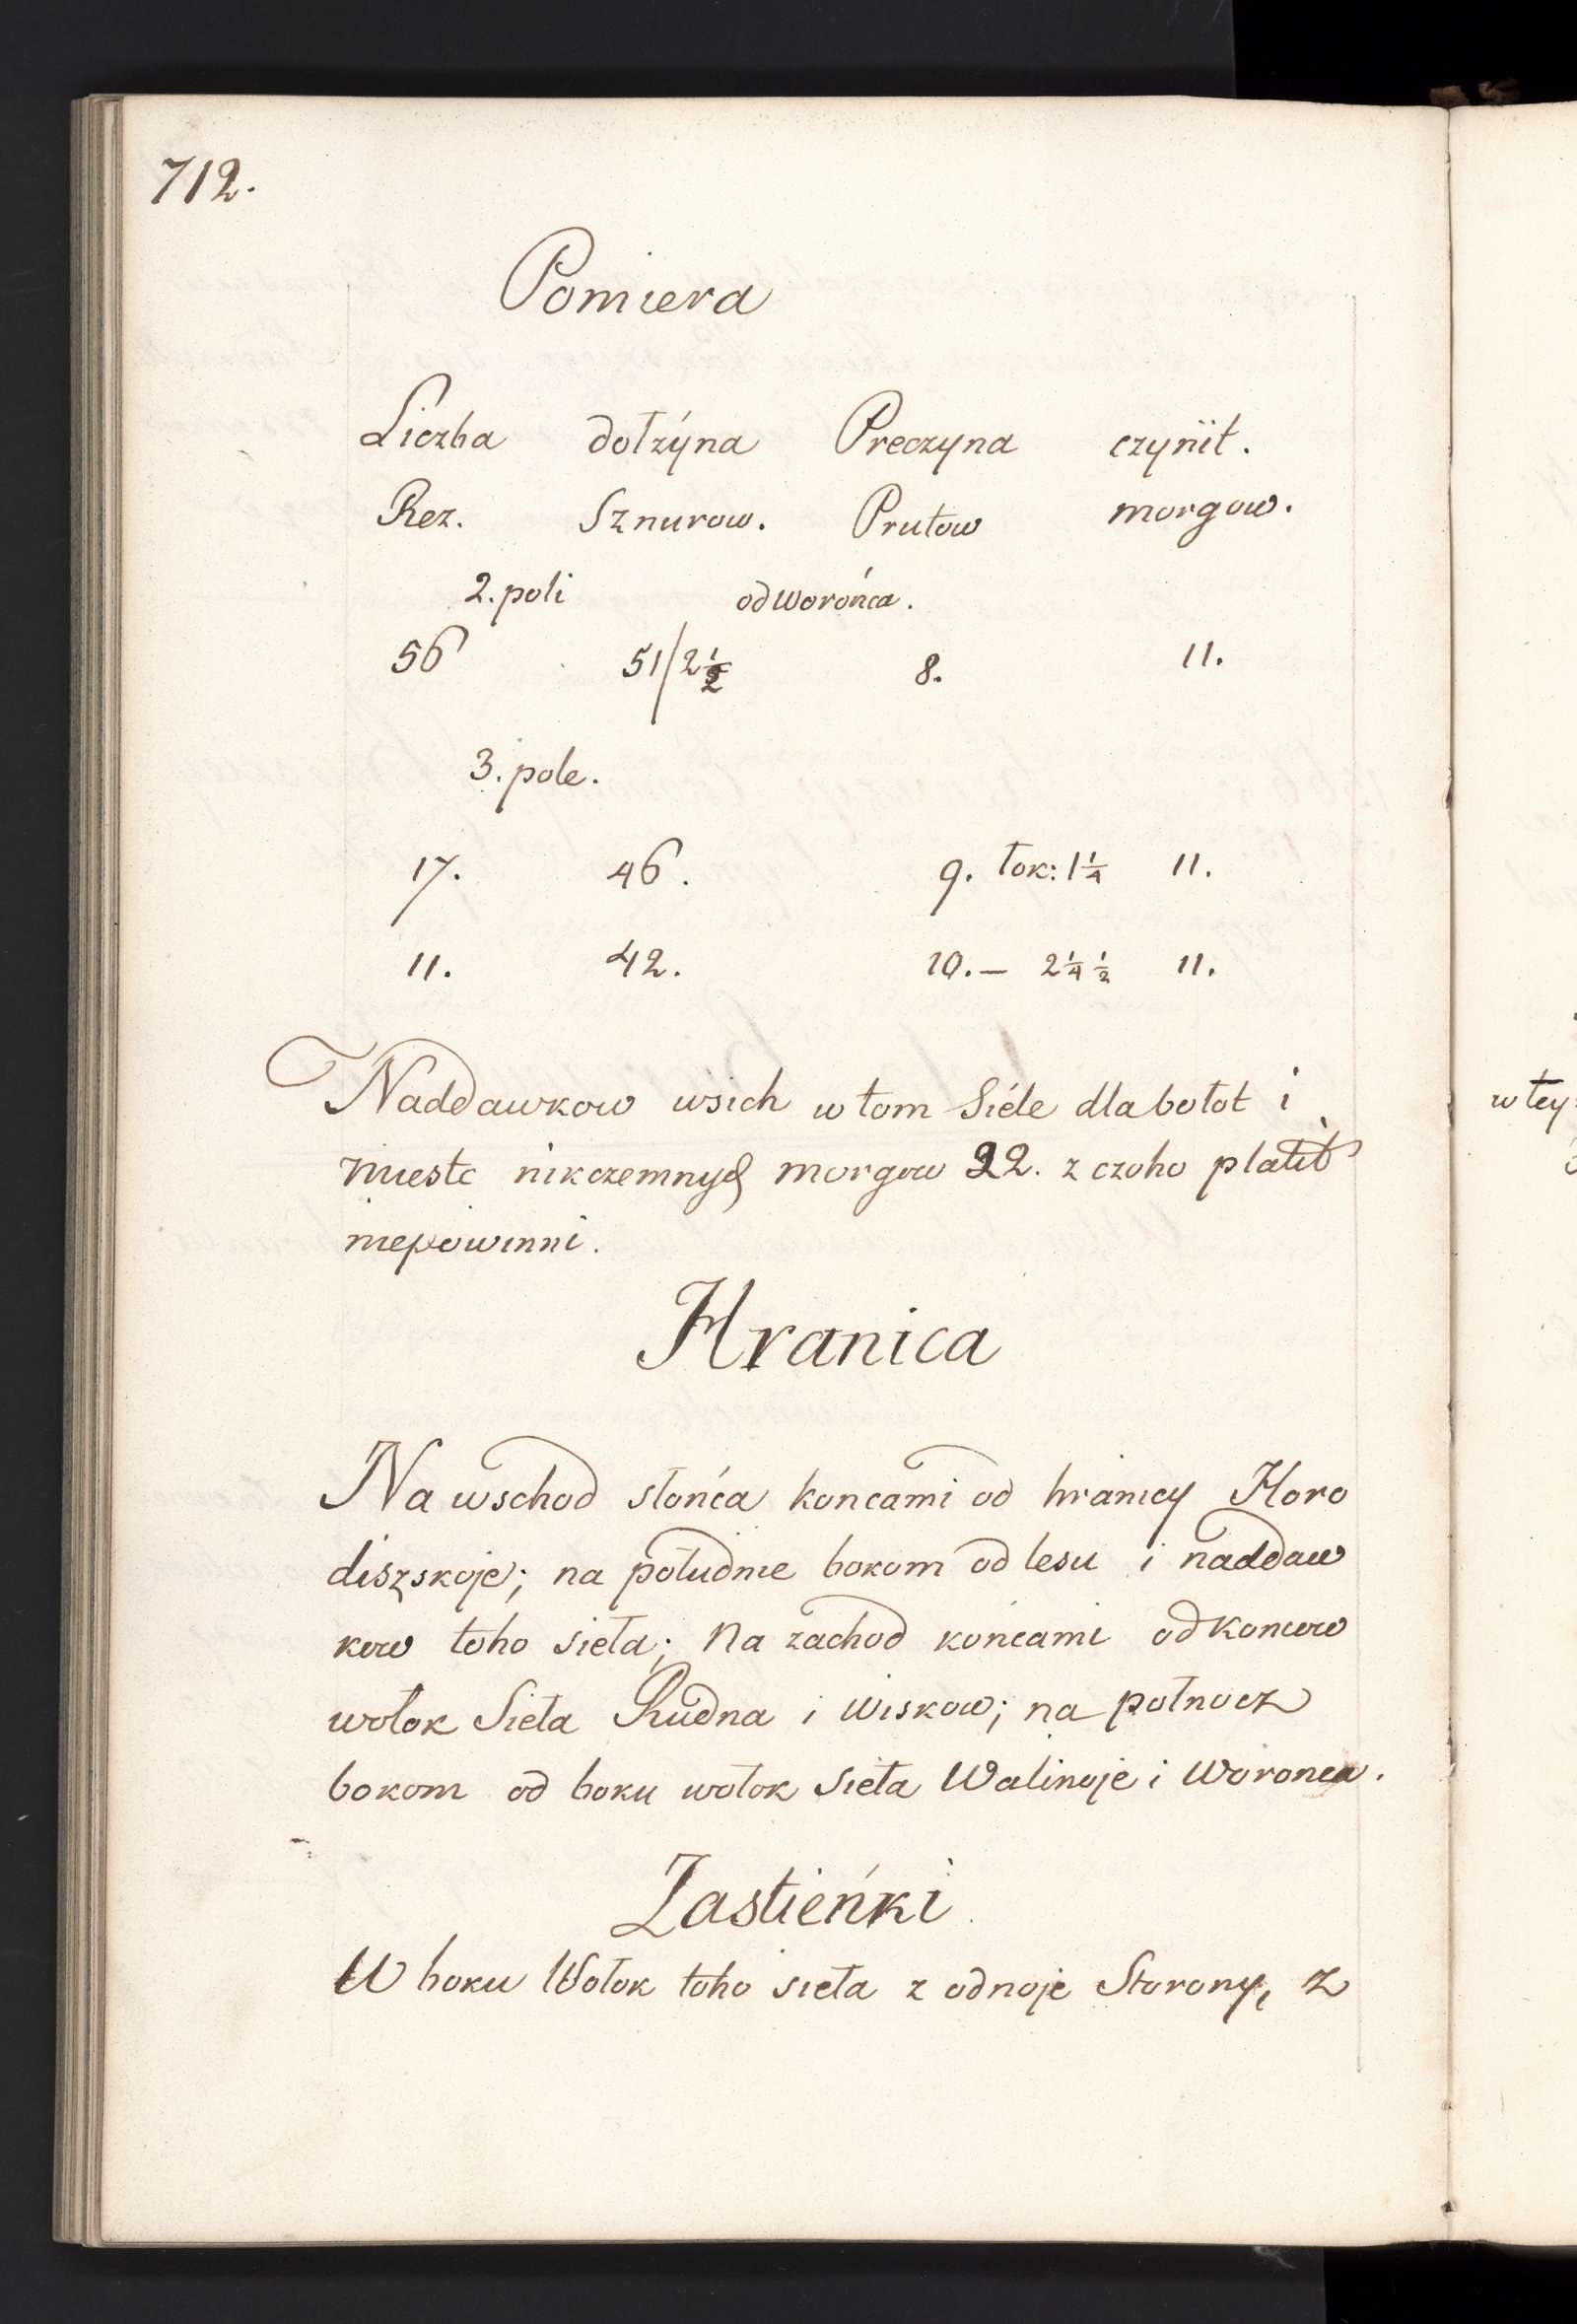 712.
Pomiera
Liczba dołzyna Preczyna czynit.
Rez. Sznurow. Prutow morgow.
2. poli od worońca.
56 51/2½ 8. 11.
3. pole.
17. 46. 9. łok: 1¼ 11.
11. 42. 10. — 2¼ ½ 11.
Naddawkow wsich w tom Siele dla bołot i
miestc nikczemnych morgow 22. z czoho płatit
niepowinni.
Hranica
Na wschod słońca koncami od hranicy Horo
diszskoje; na południe bokom od lesu i naddaw
kow toho sieła; na zachod końcami od koncow
wołok Sieła Rudna i Wiskow; na połnocz
bokom od boku wołok sieła Walinoje i Woronca.
Zastieńki
W boku Wołok toho sieła z odnoje Storony, z
w tey